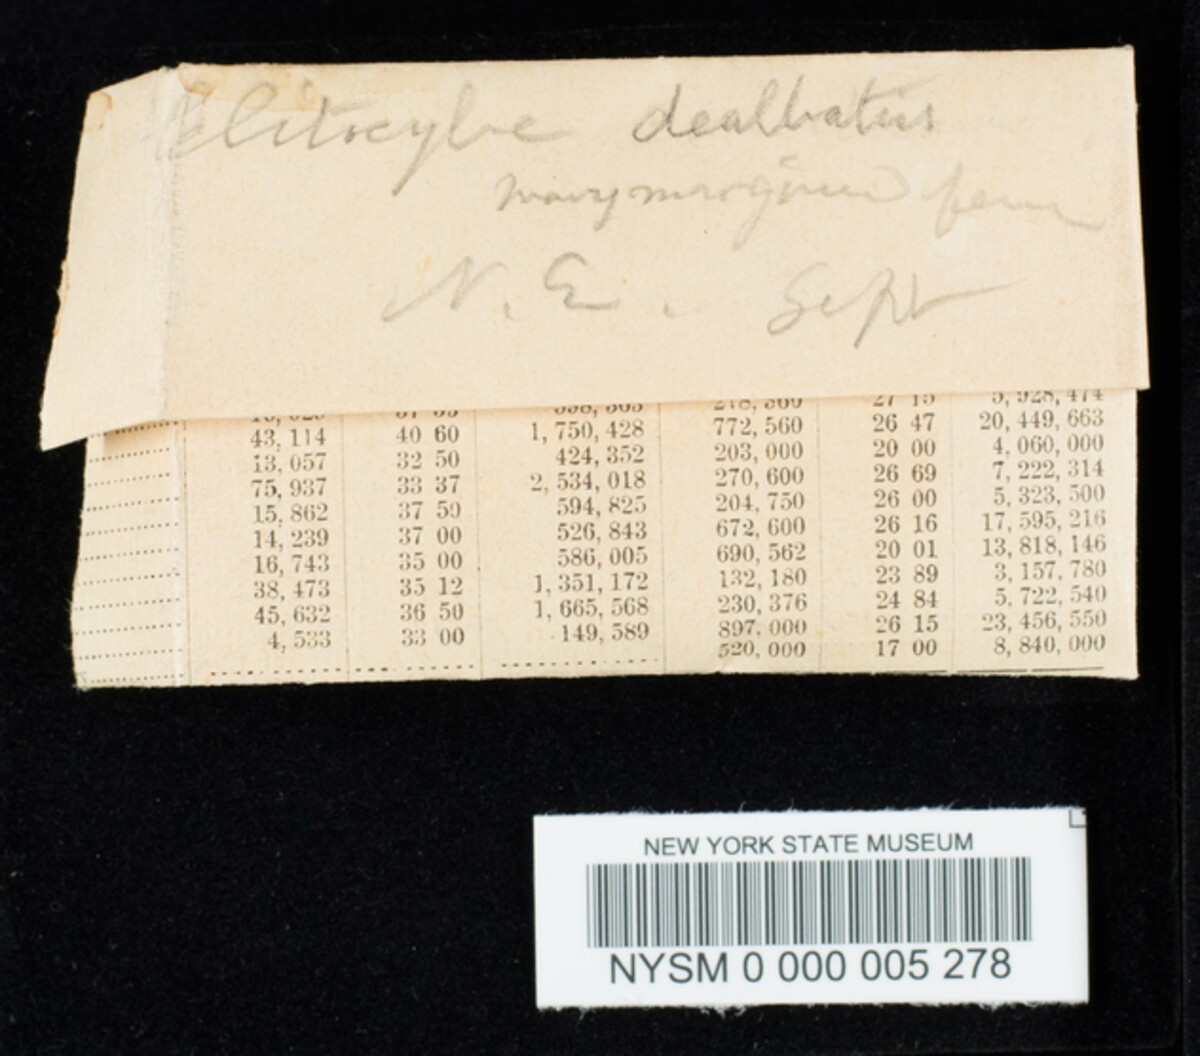 Clitocybe dealbatus
wavy margined form
N. E. Sept
43,114 40 60 1,750,428 772,560 26 47 20,449,663
13,057 32 50 424,352 203,000 20 00 4,060,000
75,937 33 37 2,534,018 270,600 26 69 7,222,314
15,862 37 50 594,825 204,750 26 00 5,323,500
14,239 37 00 526,843 672,600 26 16 17,595,216
16,743 35 00 586,005 690,562 20 01 13,818,146
38,473 35 12 1,351,172 132,180 23 89 3,157,780
45,632 36 50 1,665,568 230,376 24 84 5,722,540
4,533 33 00 149,589 897,000 26 15 23,456,550
520,000 17 00 8,840,000
NEW YORK STATE MUSEUM
NYSM 0 000 005 278